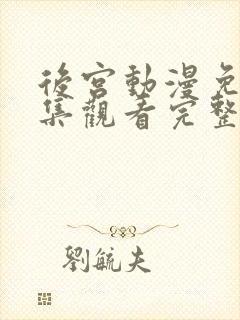 後宮動漫免
集觀看完整
劉毓夫